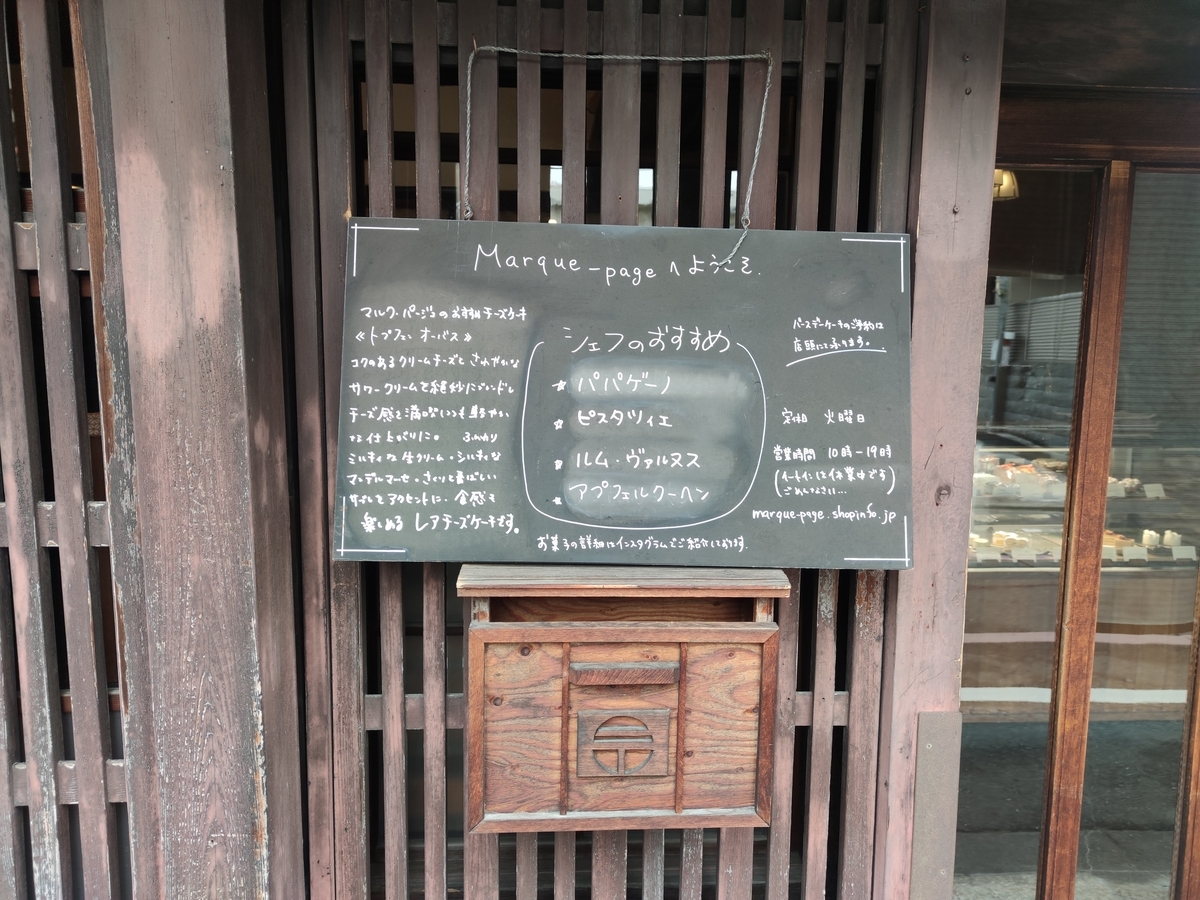 Marque-page へ ようこそ.
マルク・パージュのおすすめチーズケーキ
《トプフェン オーバス》
コクのあるクリームチーズと さわやかな
サワークリームを絶妙にブレンドし
チーズ感を満喫しつつも軽やか
な仕上がりに。 ふんわり
ミルキィな生クリーム・シルキィな
マンデルマッセ・さくっと香ばしい
サブレをアクセントに・食感も
楽しめる レアチーズケーキです。
シェフのおすすめ
☆ パパゲーノ
☆ ピスタツィエ
☆ ルム・ヴァルヌス
☆ アプフェルクーヘン
お菓子の詳細はインスタグラムでご紹介しております.
バースデーケーキのご予約は
店頭にて承ります。
定休 火曜日
営業時間 10時-19時
(イートインは休業中です
ごめんなさい…)
marque-page.shopinfo.jp